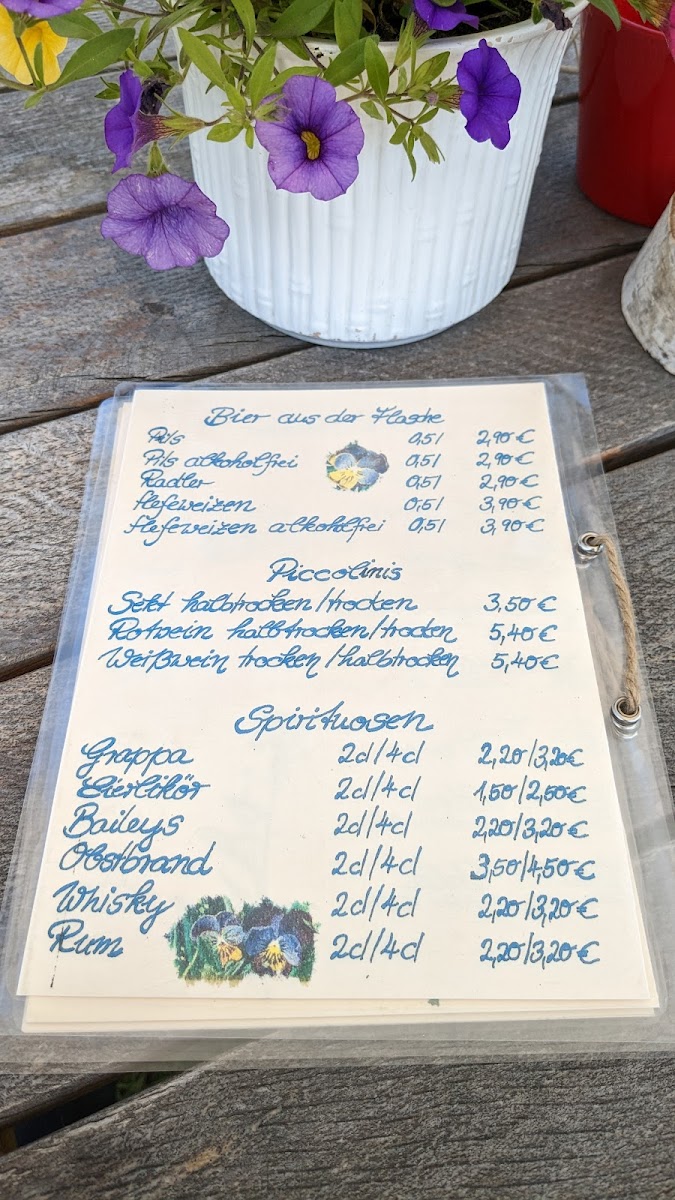 Bier aus der Flasche
Pils 0,5l 2,90€
Pils alkoholfrei 0,5l 2,90€
Radler 0,5l 2,90€
Hefeweizen 0,5l 3,90€
Hefeweizen alkoholfrei 0,5l 3,90€
Piccolinis
Sekt halbtrocken/trocken 3,50€
Rotwein halbtrocken/trocken 5,40€
Weißwein trocken/halbtrocken 5,40€
Spirituosen
Grappa 2cl/4cl 2,20/3,20€
Eierlikör 2cl/4cl 1,50/2,50€
Baileys 2cl/4cl 2,20/3,20€
Obstbrand 2cl/4cl 3,50/4,50€
Whisky 2cl/4cl 2,20/3,20€
Rum 2cl/4cl 2,20/3,20€